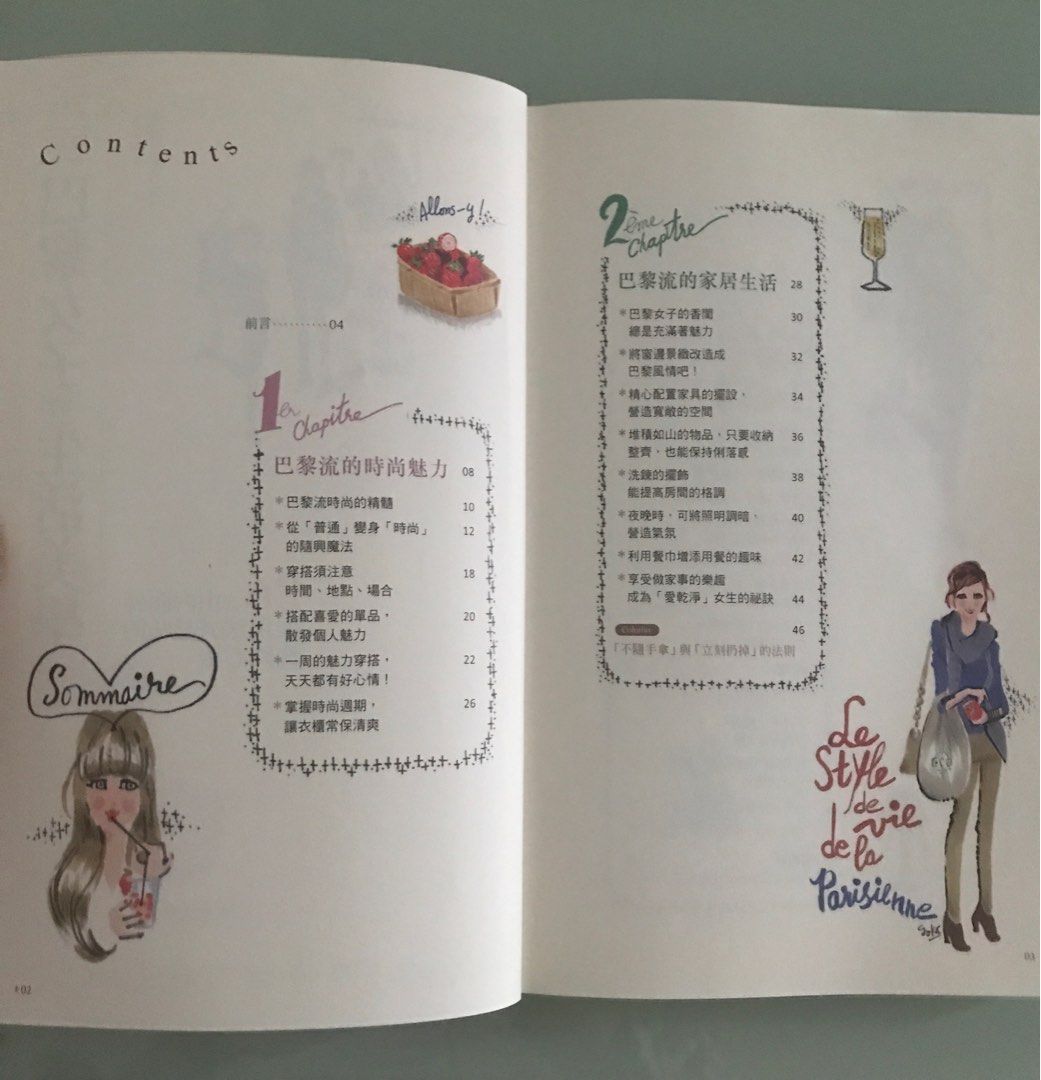 Contents
Allons-y!
前言··········04
1er Chapitre
巴黎流的時尚魅力 08
*巴黎流時尚的精髓 10
*從「普通」變身「時尚」 12
的隨興魔法
*穿搭須注意 18
時間、地點、場合
*搭配喜愛的單品， 20
散發個人魅力
*一周的魅力穿搭， 22
天天都有好心情！
*掌握時尚週期， 26
讓衣櫃常保清爽
Sommaire
02
2ème Chapitre
巴黎流的家居生活 28
*巴黎女子的香閨 30
總是充滿著魅力
*將窗邊景緻改造成 32
巴黎風情吧！
*精心配置家具的擺設， 34
營造寬敞的空間
*堆積如山的物品，只要收納 36
整齊，也能保持俐落感
*洗鍊的擺飾 38
能提高房間的格調
*夜晚時，可將照明調暗， 40
營造氣氛
*利用餐巾增添用餐的趣味 42
*享受做家事的樂趣
成為「愛乾淨」女生的祕訣 44
Column 46
「不隨手拿」與「立刻扔掉」的法則
Le
Style
de vie
de la
Parisienne
03